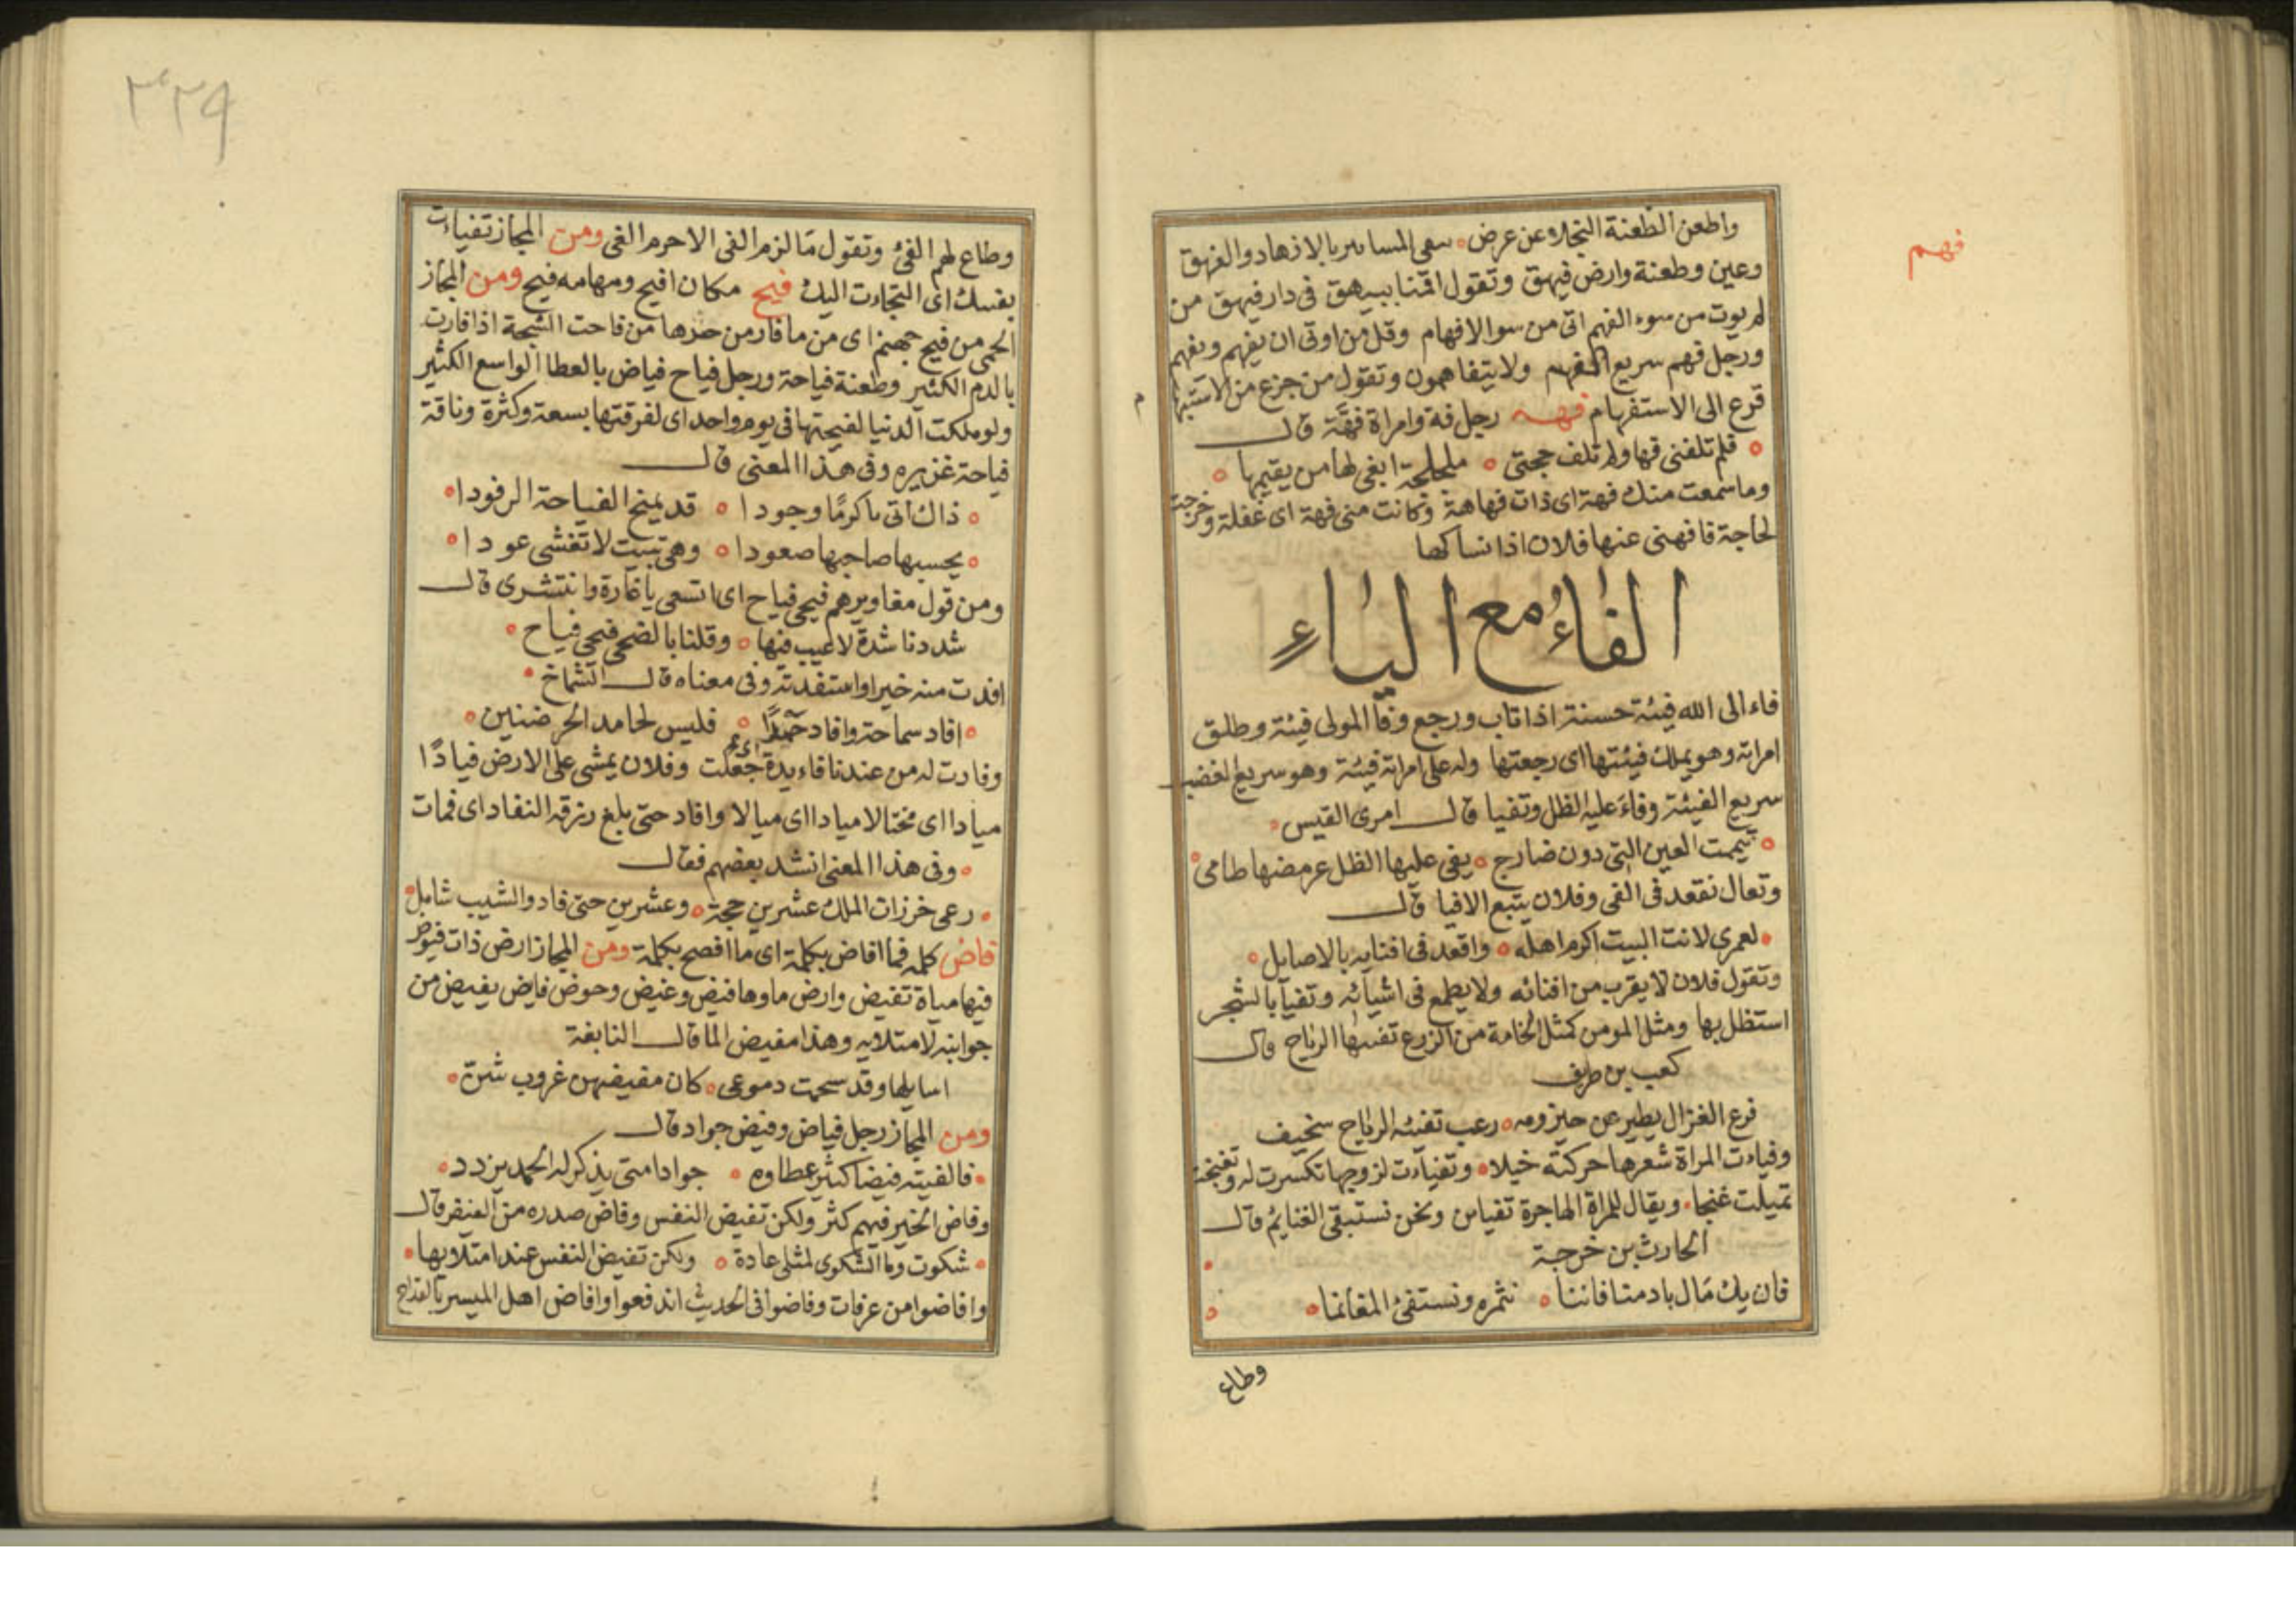 فهم
واطعن الطعنة النجلاء عن عرض سعى المسابير بالازهاد والفهق
وعين وطعنة وارض فيهق وتقول اقمنا ببيهق فى دار فيهق من
لم يوت من سوء الفهم اتى من سوا الافهام وقل من اوتى ان يفهم ويفهم
ورجل فهم سريع الفهم ولا يتفاهمون وتقول من جزع من الاستبهام
قرع الى الاستفهام فهه رجل فه وامراة فهّة قال
فلم تلفنى فها ولم تلف حجتى ملجلجة ابغى لها من يقيمها
وما سمعت منك فهة اى ذات فهاهة وكانت منى فهة اى غفلة وخرجت
لحاجة فافهنى عنها فلان اذا نساكها
الفاء مع الياء
فاء الى الله فيئة حسنة اذا تاب ورجع وفا المولى فيئة وطلق
امراته وهو يملك فيئتها اى رجعتها وله على امراته فيئة وهو سريع الغضب
سريع الفيئة وفاء عليه الظل وتفيا قال امرى القيس
تيممت العين التى دون ضارج يفى عليها الظل عرمضها طامى
وتعال نقعد فى الفى وفلان يتبع الافيا قال
لعمرى لانت البيت اكرم اهله واقعد فى افنايه بالاصايل
وتقول فلان لا يقرب من افنائه ولا يطمع فى اشيائه وتفيآ بالشجر
استظل بها ومثل المومن كمثل الخامة من الزرع تفيئها الرياح قال
كعب بن طريف
فرع الغزال يطير عن حيزومه رعب تفيئه الرياح سخيف
وفياءت المراة شعرها حركته خيلا وتفياءت لزوجها تكسرت له وتغنجت
تميلت غنجا ويقال للمراة الهاجرة تفياين ونحن نستبقى الغنايم قال
الحارث بن خرجة
فان يك مال باد منا فاننا نثمره ونستفئ المغانما
وطاع
٣٢٩
وطاع لهم الفئ وتقول ما لزم الفى الا حرم الغى ومن المجاز تفيات
بفيئك اى التجاءت اليك فيح مكان افيح ومهامه فيح ومن المجاز
الحمى من فيح جهنم اى من ما فار من حرها من فاحت الشجة اذا فارت
بالدم الكثير وطعنة فياحة ورجل فياح فياض بالعطا الواسع الكثير
ولو ملكت الدنيا لفيحتها فى يوم واحد اى لفرقتها بسعة وكثرة وناقة
فياحة غزيره وفى هذا المعنى قال
ذاك اتى ما كرمًا وجودا قد يمنح الفياحة الرفودا
يحسبها صاحبها صعودا وهى تبيت لا تغشى عودا
ومن قول مغاويرهم فيحى فياح اى اتسعى يا غارة وانتشرى قال
شددنا شدة لا عيب فيها وقلنا بالضحى فيحى فياح
افدت منه خيرا واستفدته وفى معناه قال الشماخ
افاد سماحة وافاد حمدًا فليس لحامد الحر ضنين
وفادت له من عندنا فاءيدة اى جعلت وفلان يمشى على الارض فيادًا
ميادا اى مختالا ميادا اى ميالا وافاد حتى بلغ رزقه النفاد اى فمات
وفى هذا المعنى انشد بعضهم فقال
رعى خرزات الملك عشرين حجة وعشرين حتى فاد والشيب شامل
فاض كلمه فما افاض بكلمة اى ما افصح بكلمة ومن المجاز ارض ذات فيوض
فيها مياة تفيض وارض ماوها فيض وغيض وحوض فايض يفيض من
جوانبه لامتلايه وهذا مفيض الما قال النابغة
اسايلها وقد سحمت دموعى كان مفيضهن غروب شن
ومن المجاز رجل فياض وفيض جواد قال
فالفيته فيضا كثير عطاوه جوادا متى يذكر له الحمد يزدد
وفاض الخير فيهم كثر ولكن تفيض النفس وفاض صدره من الغيظ قال
شكوت وما الشكوى لمثلى عادة ولكن تفيض النفس عند امتلايها
وافاضوا من عرفات وفاضوا فى الحديث اندفعوا وافاض اهل الميسر بالقداح